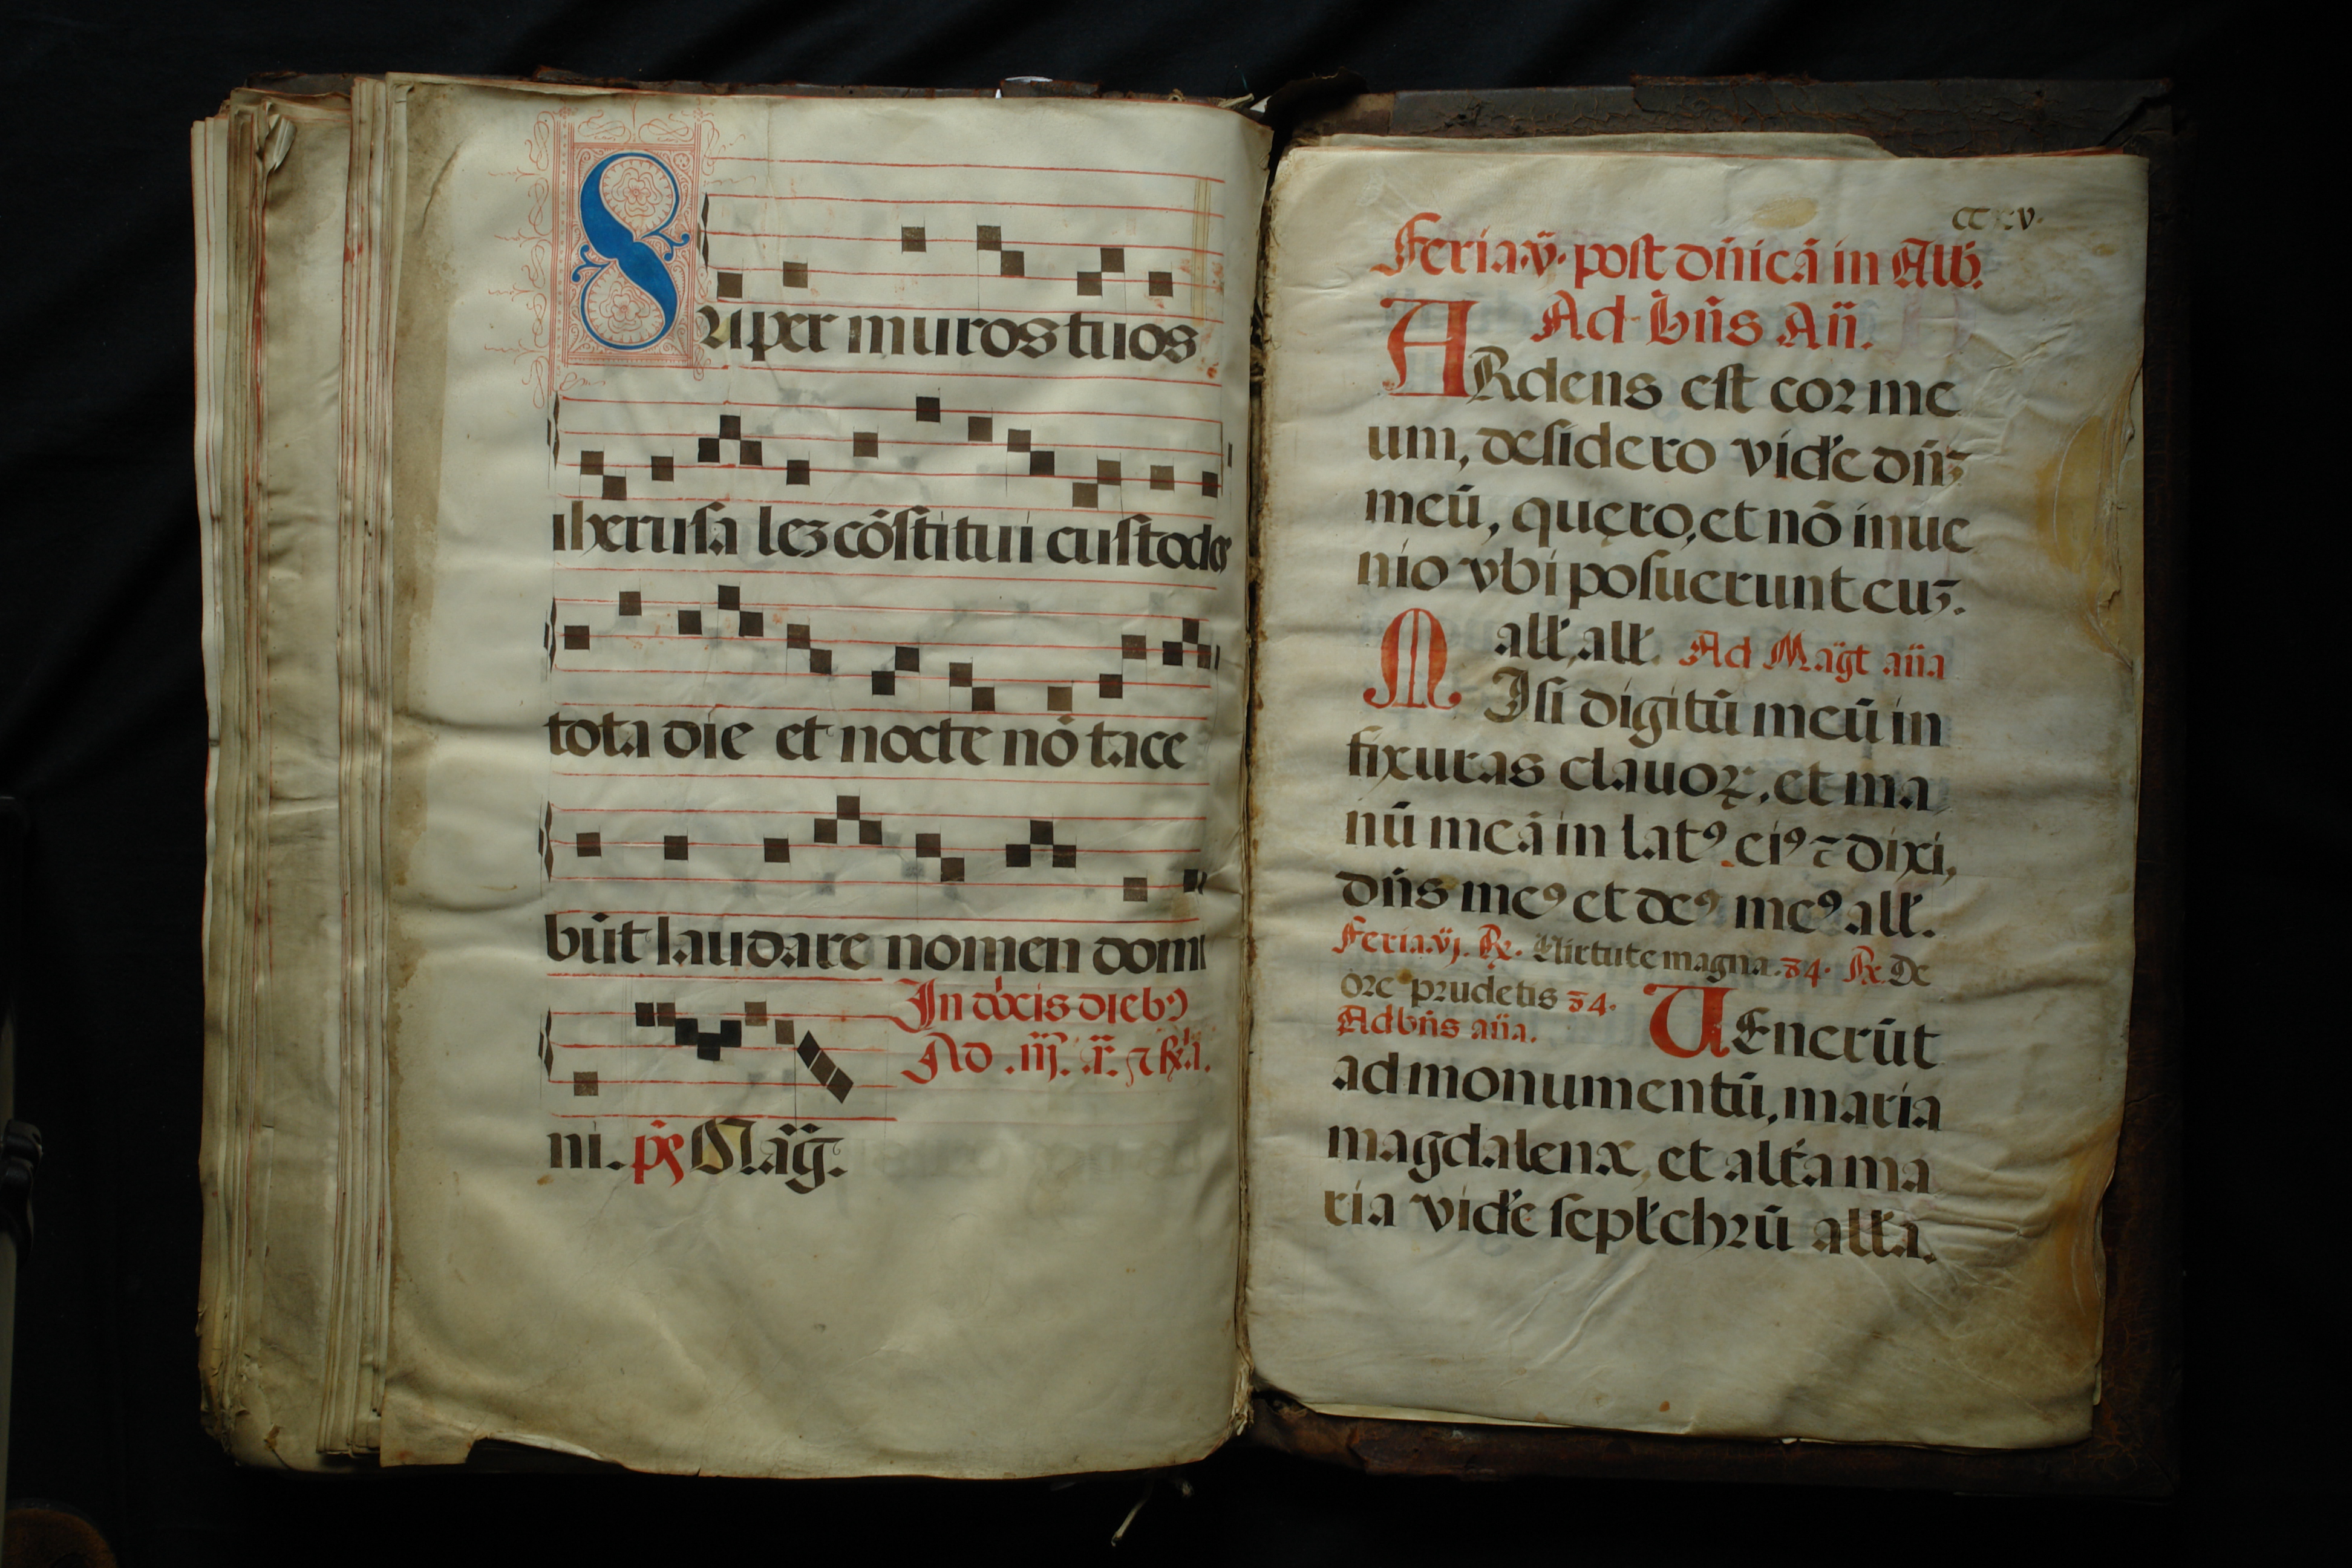 Super muros tuos
iherusa leʒ cōſtitui cuſtodes
tota die et nocte nō tace
būt laudare nomen domi
In dōcis diebꝯ
Ad .iij.
ni. pẜ Mag̈.
Feria.v̈. poſt dn̄icā in Alb̄.
Ad bn̄s An̄.
ARdens eſt coꝛ me
um, deſidero vid̄e dn̄ʒ
meū, quęro, et nō inue
nio vbi poſuerunt euʒ.
all̄, all̄. Ad Mag̈t an̄a
MIſi digitū meū in
fixuras clauoꝝ, et ma
nū meā in latꝯ eiꝯ ⁊ dixi,
dn̄s meꝯ et deꝯ meꝯ all̄.
Feria.vj. ꝶ. Virtute magna. 34. ꝶ. De
oꝛe pꝛudētis 34.
Ad bn̄s an̄a. VEnerūt
ad monumentū, maria
magdalenæ, et alt̄a ma
ria vid̄e ſepl̄chꝛū all̄a.